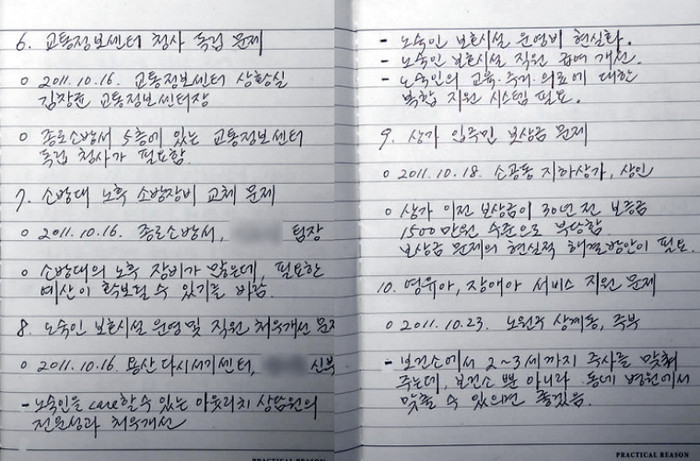 6. 교통정보센터 청사 독립 문제
o 2011.10.16. 교통정보센터 상황실
김장윤 교통정보센터장
o 종로소방서 5층에 있는 교통정보센터
독립 청사가 필요함.
7. 소방대 노후 소방장비 교체 문제
o 2011.10.16. 종로소방서, 팀장
o 소방대의 노후 장비가 많은데, 필요한
예산이 확보될 수 있기를 바람.
8. 노숙인 보호시설 운영 및 직원 처우개선 문제
o 2011.10.16. 용산 다시서기센터, 신부
- 노숙인을 care할 수 있는 아웃리치 상담원의
전문성과 처우개선
PRACTICAL REASON
- 노숙인 보호시설 운영비 현실화.
- 노숙인 보호시설 직원 급여 개선.
- 노숙인의 교육·주거·의료에 대한
복합 지원 시스템 필요.
9. 상가 입주민 보상금 문제
o 2011.10.18. 소공동 지하상가, 상인
o 상가 이전 보상금이 30년 전 보증금
1500만원 수준으로 부당함.
보상금 문제의 현실적 해결방안이 필요.
10. 영유아, 장애아 서비스 지원 문제
o 2011.10.23. 노원구 상계동, 주부
- 보건소에서 2~3세까지 주사를 맞춰
주는데, 보건소 뿐 아니라 동네 병원에서
맞출 수 있으면 좋겠음.
PRACTICAL REASON